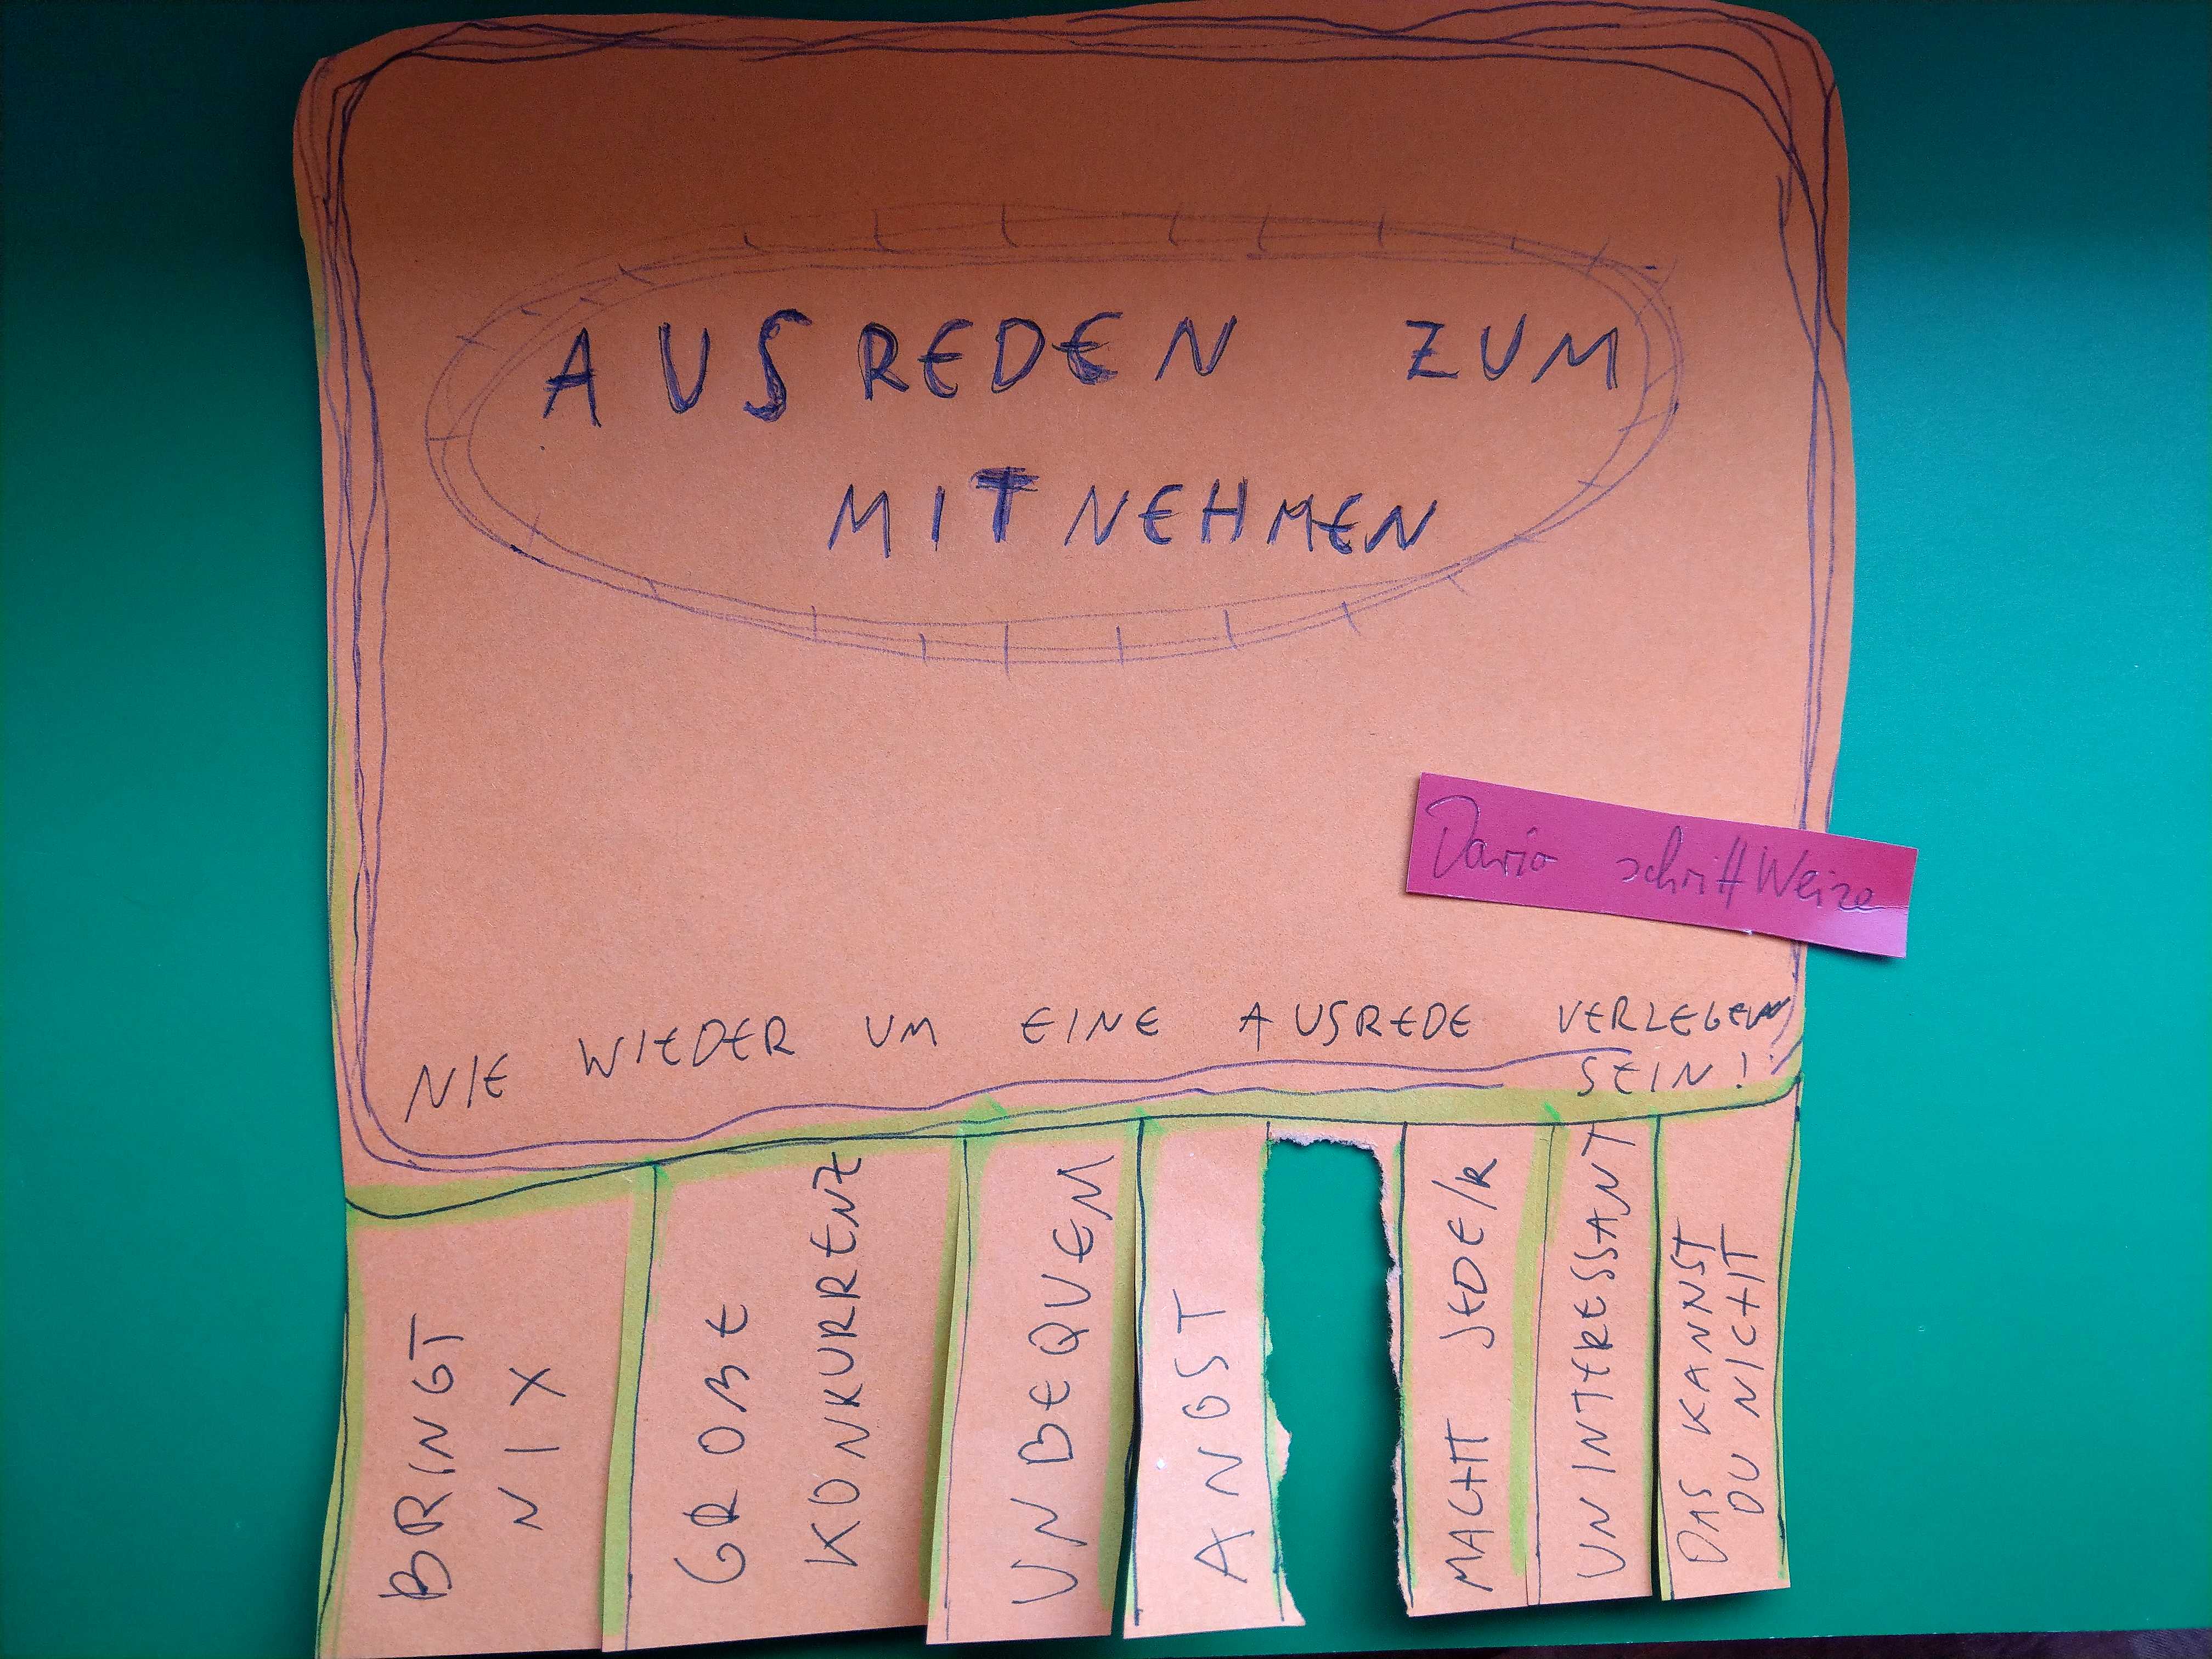 AUSREDEN ZUM
MITNEHMEN
Dario schrittWeise
NIE WIEDER UM EINE AUSREDE VERLEGEN
SEIN!
BRINGT
NIX
GROBE
KONKURRENZ
UNBEQUEM
ANGST
MACHT JEDE/R
UNINTERESSANT
DAS KANNST
DU NICHT